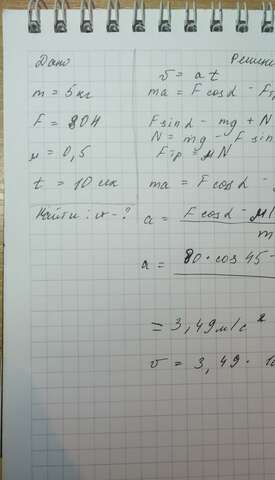 Дано
Решени
m = 5 кг
F = 80 Н
μ = 0,5
t = 10 сек
Найти: v - ?
v = a t
ma = F cos α - Fт
F sin α - mg + N
N = mg - F sin
Fтр = μN
ma = F cos α -
a = F cos α - μ(
m
a = 80 · cos 45 -
= 3,49 м/с²
v = 3,49 · 10